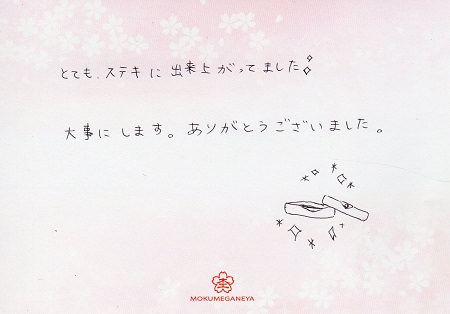 とても、ステキに出来上がってました
大事にします。ありがとうございました。
MOKUMEGANEYA